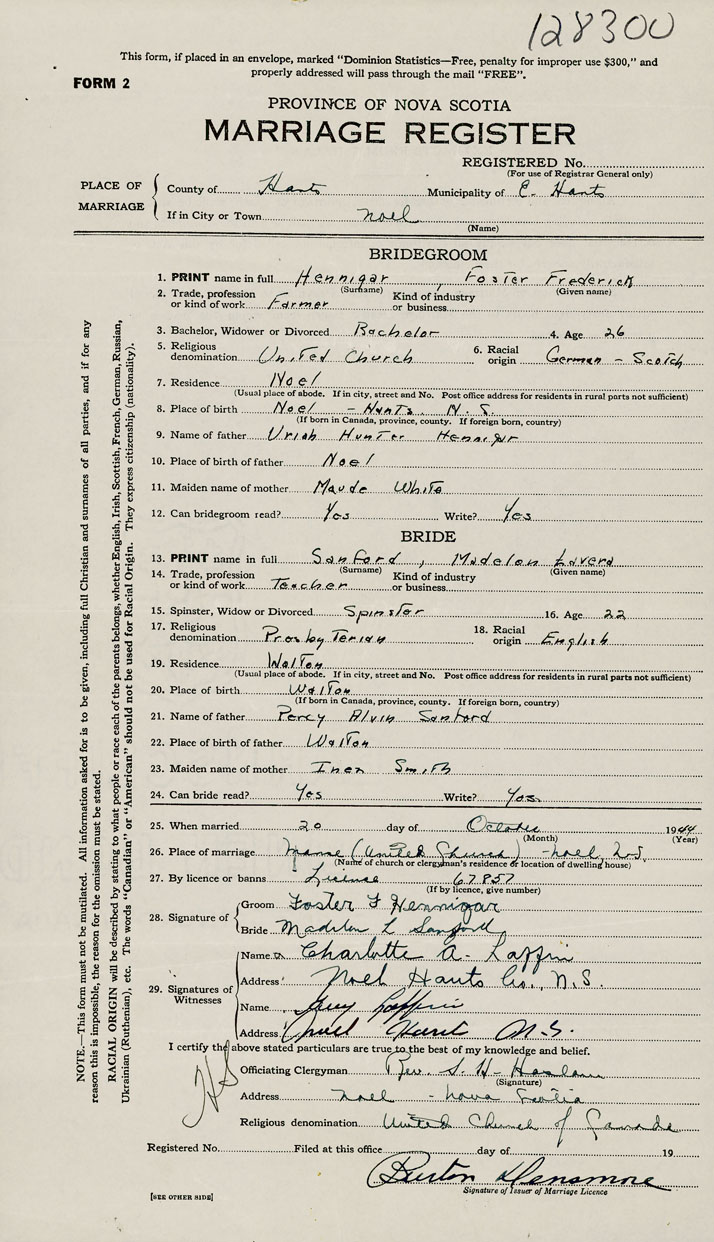 128300
This form, if placed in an envelope, marked "Dominion Statistics—Free, penalty for improper use $300," and
properly addressed will pass through the mail "FREE".
FORM 2
PROVINCE OF NOVA SCOTIA
MARRIAGE REGISTER
REGISTERED No.
(For use of Registrar General only)
PLACE OF MARRIAGE
County of Hants Municipality of E. Hants
If in City or Town Noel
(Name)
BRIDEGROOM
1. PRINT name in full Hennigar, Foster Frederick
(Surname) (Given name)
2. Trade, profession or kind of work Farmer Kind of industry or business
3. Bachelor, Widower or Divorced Bachelor 4. Age 26
5. Religious denomination United Church 6. Racial origin German - Scotch
7. Residence Noel
(Usual place of abode. If in city, street and No. Post office address for residents in rural parts not sufficient)
8. Place of birth Noel - Hants N.S.
(If born in Canada, province, county. If foreign born, country)
9. Name of father Uriah Hunter Hennigar
10. Place of birth of father Noel
11. Maiden name of mother Maude White
12. Can bridegroom read? Yes Write? Yes
BRIDE
13. PRINT name in full Sanford, Madelon Lavera
(Surname) (Given name)
14. Trade, profession or kind of work Teacher Kind of industry or business
15. Spinster, Widow or Divorced Spinster 16. Age 22
17. Religious denomination Presbyterian 18. Racial origin English
19. Residence Walton
(Usual place of abode. If in city, street and No. Post office address for residents in rural parts not sufficient)
20. Place of birth Walton
(If born in Canada, province, county. If foreign born, country)
21. Name of father Percy Alvin Sanford
22. Place of birth of father Walton
23. Maiden name of mother Inez Smith
24. Can bride read? Yes Write? Yes
25. When married 20 day of October 1944
(Month) (Year)
26. Place of marriage Manse (United Church) - Noel, N.S.
(Name of church or clergyman's residence or location of dwelling house)
27. By licence or banns License 67857
(If by licence, give number)
28. Signature of
Groom Foster F Hennigar
Bride Madelon L Sanford
29. Signatures of Witnesses
Name Charlotte A. Laffin
Address Noel Hants Co., N.S.
Name Guy Laffin
Address Noel Hants N.S.
I certify the above stated particulars are true to the best of my knowledge and belief.
Officiating Clergyman Rev. S. H.
(Signature)
Address Noel - Nova Scotia
Religious denomination United Church of Canada
Registered No. Filed at this office day of 19
Burton Densmore
Signature of Issuer of Marriage Licence
[SEE OTHER SIDE]
NOTE.—This form must not be mutilated. All information asked for is to be given, including full Christian and surnames of all parties, and if for any
reason this is impossible, the reason for the omission must be stated.
RACIAL ORIGIN will be described by stating to what people or race each of the parents belongs, whether English, Irish, Scottish, French, German, Russian,
Ukrainian (Ruthenian), etc. The words "Canadian" or "American" should not be used for Racial Origin. They express citizenship (nationality).